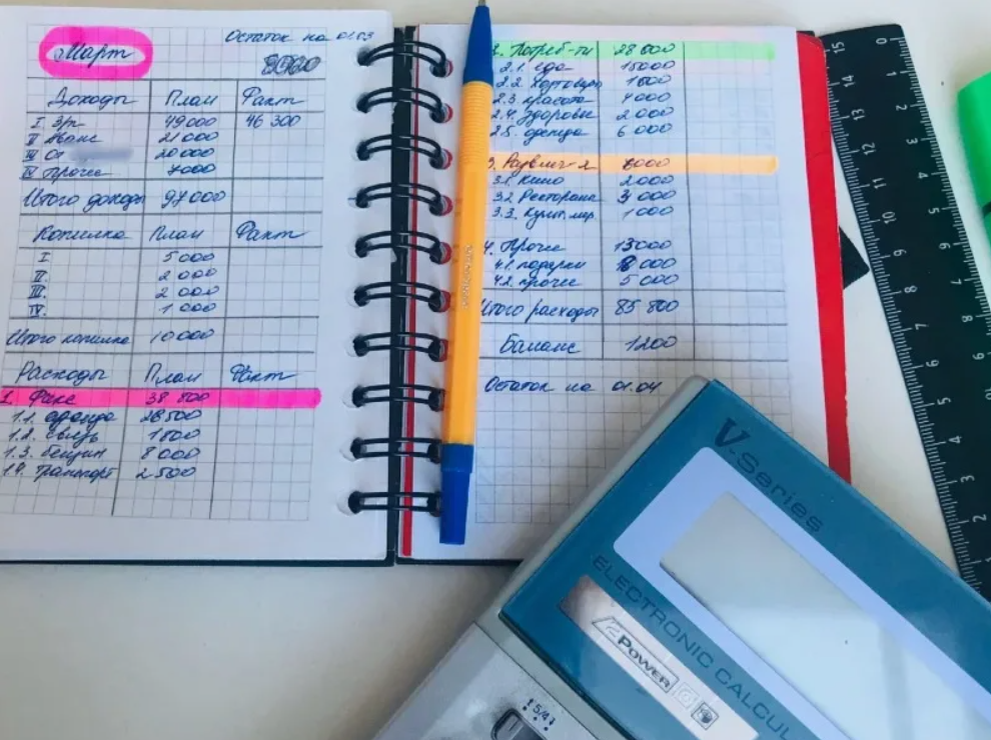 Март
Остаток на 01.03
Доходы План Факт
I Зп 49000 46 300
II Аванс 21000
III От 20000
IV Прочее 7000
Итого доходы 97000
Копилка План Факт
I. 5000
II. 2000
III. 2000
IV. 1000
Итого копилка 10000
Расходы План Факт
1. Фикс 38 800
1.1. аренда 26500
1.2. связь 1800
1.3. бензин 8000
1.4. транспорт 2500
2. Потреб-ти 28 600
2.1. еда 15000
2.2. 1600
2.3 красота 4000
2.4. здоровье 2000
2.5. одежда 6000
3. Развлеч-я 6000
3.1. Кино 2000
3.2 Рестораны 3000
3.3. Культ.мер. 1000
4. Прочее 13000
4.1. подарки 8000
4.2. прочее 5000
Итого расходы 85 800
Баланс 1200
Остаток на 01.04
V.Series
ELECTRONIC CALCUL
POWER
15 14 13 12 11 10 9 8 7 6 5 4 3 2
0 1 2 3 4 5 6 7 8 9